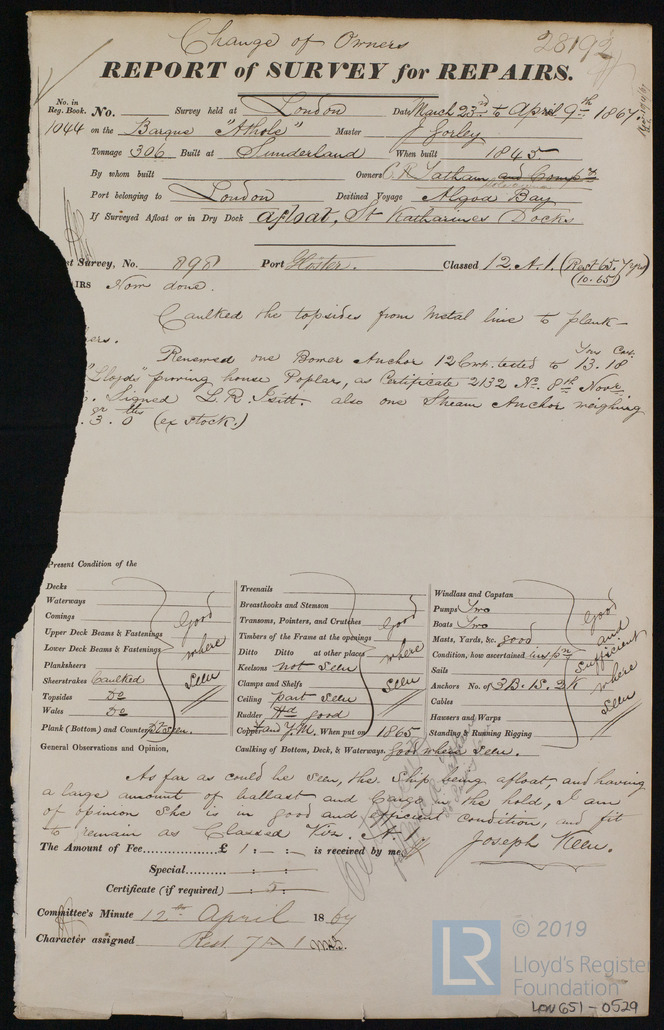 Change of Owners
28192
REPORT of SURVEY for REPAIRS.
No. in Reg. Book. No. Survey held at London Date March 23rd to April 9th 1867.
1044 on the Barque "Athole" Master J Gorley
Tonnage 306 Built at Sunderland When built 1845
By whom built Owners C R Tatham and Compy
Port belonging to London Destined Voyage Algoa Bay
If Surveyed Afloat or in Dry Dock afloat, St Katharines Docks
st Survey, No. 898 Port Gloster. Classed 12. A.1. (Rest 65. 7yrs)
(10.65)
IRS Now done.
Caulked the topsides from metal line to plank-
ers.
Renewed one Bower Anchor 12 Cwt. tested to 13.18
Tns Cwt.
"Lloyds" proving house, Poplar, as Certificate 2132 No. 8th Novr.
Signed L. R. Isitt. also one Stream Anchor weighing
. 3. 0 (ex stock.)
Present Condition of the
Decks
Waterways
Comings
Upper Deck Beams & Fastenings
Lower Deck Beams & Fastenings
Planksheers
Good where seen
Sheerstrakes Caulked
Topsides Do
Wales Do
Plank (Bottom) and Counters Do seen.
Treenails
Breasthooks and Stemson
Transoms, Pointers, and Crutches
Timbers of the Frame at the openings
Ditto Ditto at other places
Keelsons not seen
Clamps and Shelfs
Ceiling part seen
Good where seen
Rudder Hd good
Copper and Y.M. When put on 1865
Windlass and Capstan
Pumps Two
Boats Two
Masts, Yards, &c. good
Condition, how ascertained inspn
Sails
Anchors No. of 3B. 1S. 2K
Cables
Hawsers and Warps
Standing & Running Rigging
Good and sufficient where seen
General Observations and Opinion, Caulking of Bottom, Deck, & Waterways. good where seen.
As far as could be seen, the Ship being afloat, and having
a large amount of ballast and Cargo in the hold, I am
of opinion she is in good and efficient condition, and fit
to remain as Classed Viz. A.1.
The Amount of Fee £ 1 : - : - is received by me,
Joseph Keen.
Special : :
Certificate (if required) : 5 :
Committee's Minute 12th April 1867
Character assigned Rest 7 A 1
© 2019
LR
Lloyd's Register
Foundation
LON651-0529